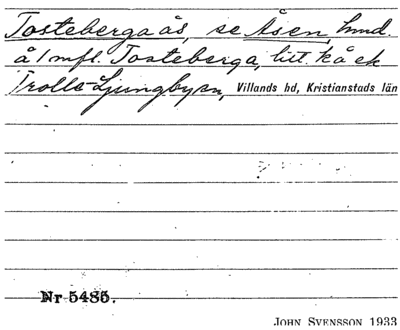 Tosteberga ås, se Åsen, hmd.
å 1 mfl. Tosteberga, litt. kå ek
Trolle-Ljungby sn, Villands hd, Kristianstads län
Nr 5485.
JOHN SVENSSON 1933